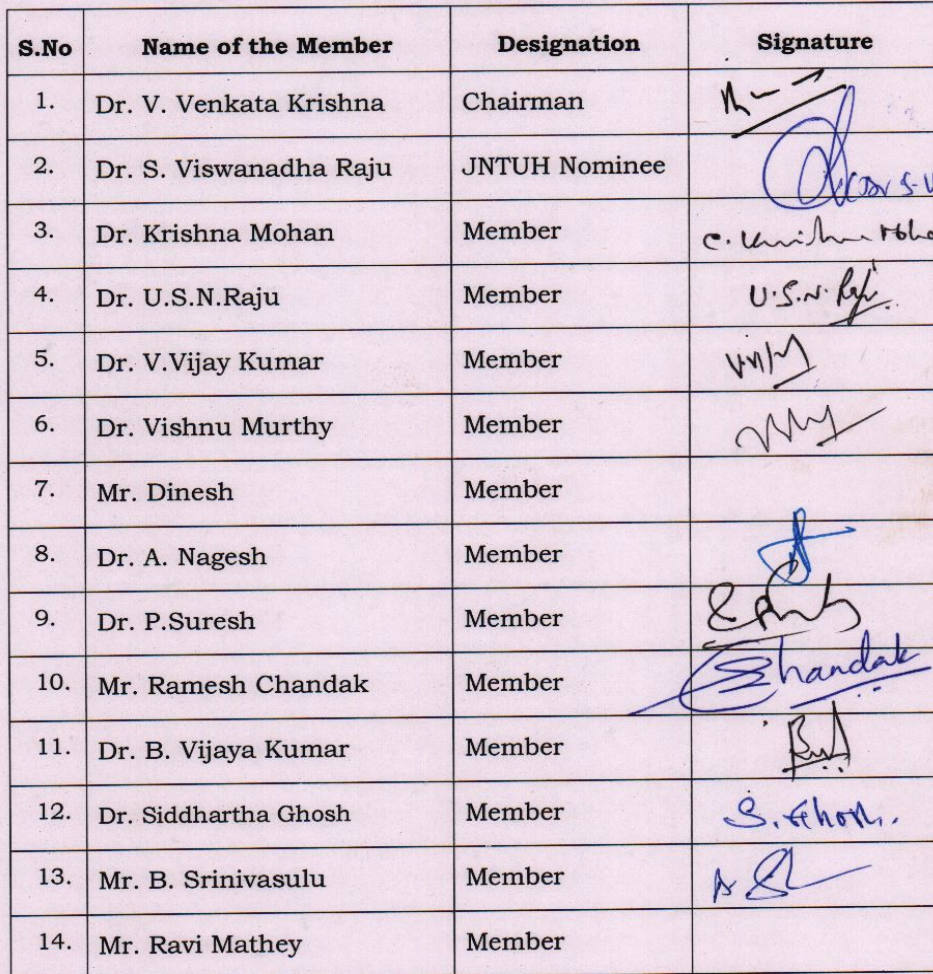 S.No Name of the Member Designation Signature
1. Dr. V. Venkata Krishna Chairman
2. Dr. S. Viswanadha Raju JNTUH Nominee
3. Dr. Krishna Mohan Member C. Krishna
4. Dr. U.S.N.Raju Member U.S.N. Raju
5. Dr. V.Vijay Kumar Member
6. Dr. Vishnu Murthy Member
7. Mr. Dinesh Member
8. Dr. A. Nagesh Member
9. Dr. P.Suresh Member
10. Mr. Ramesh Chandak Member Chandak
11. Dr. B. Vijaya Kumar Member
12. Dr. Siddhartha Ghosh Member S. Ghosh
13. Mr. B. Srinivasulu Member
14. Mr. Ravi Mathey Member